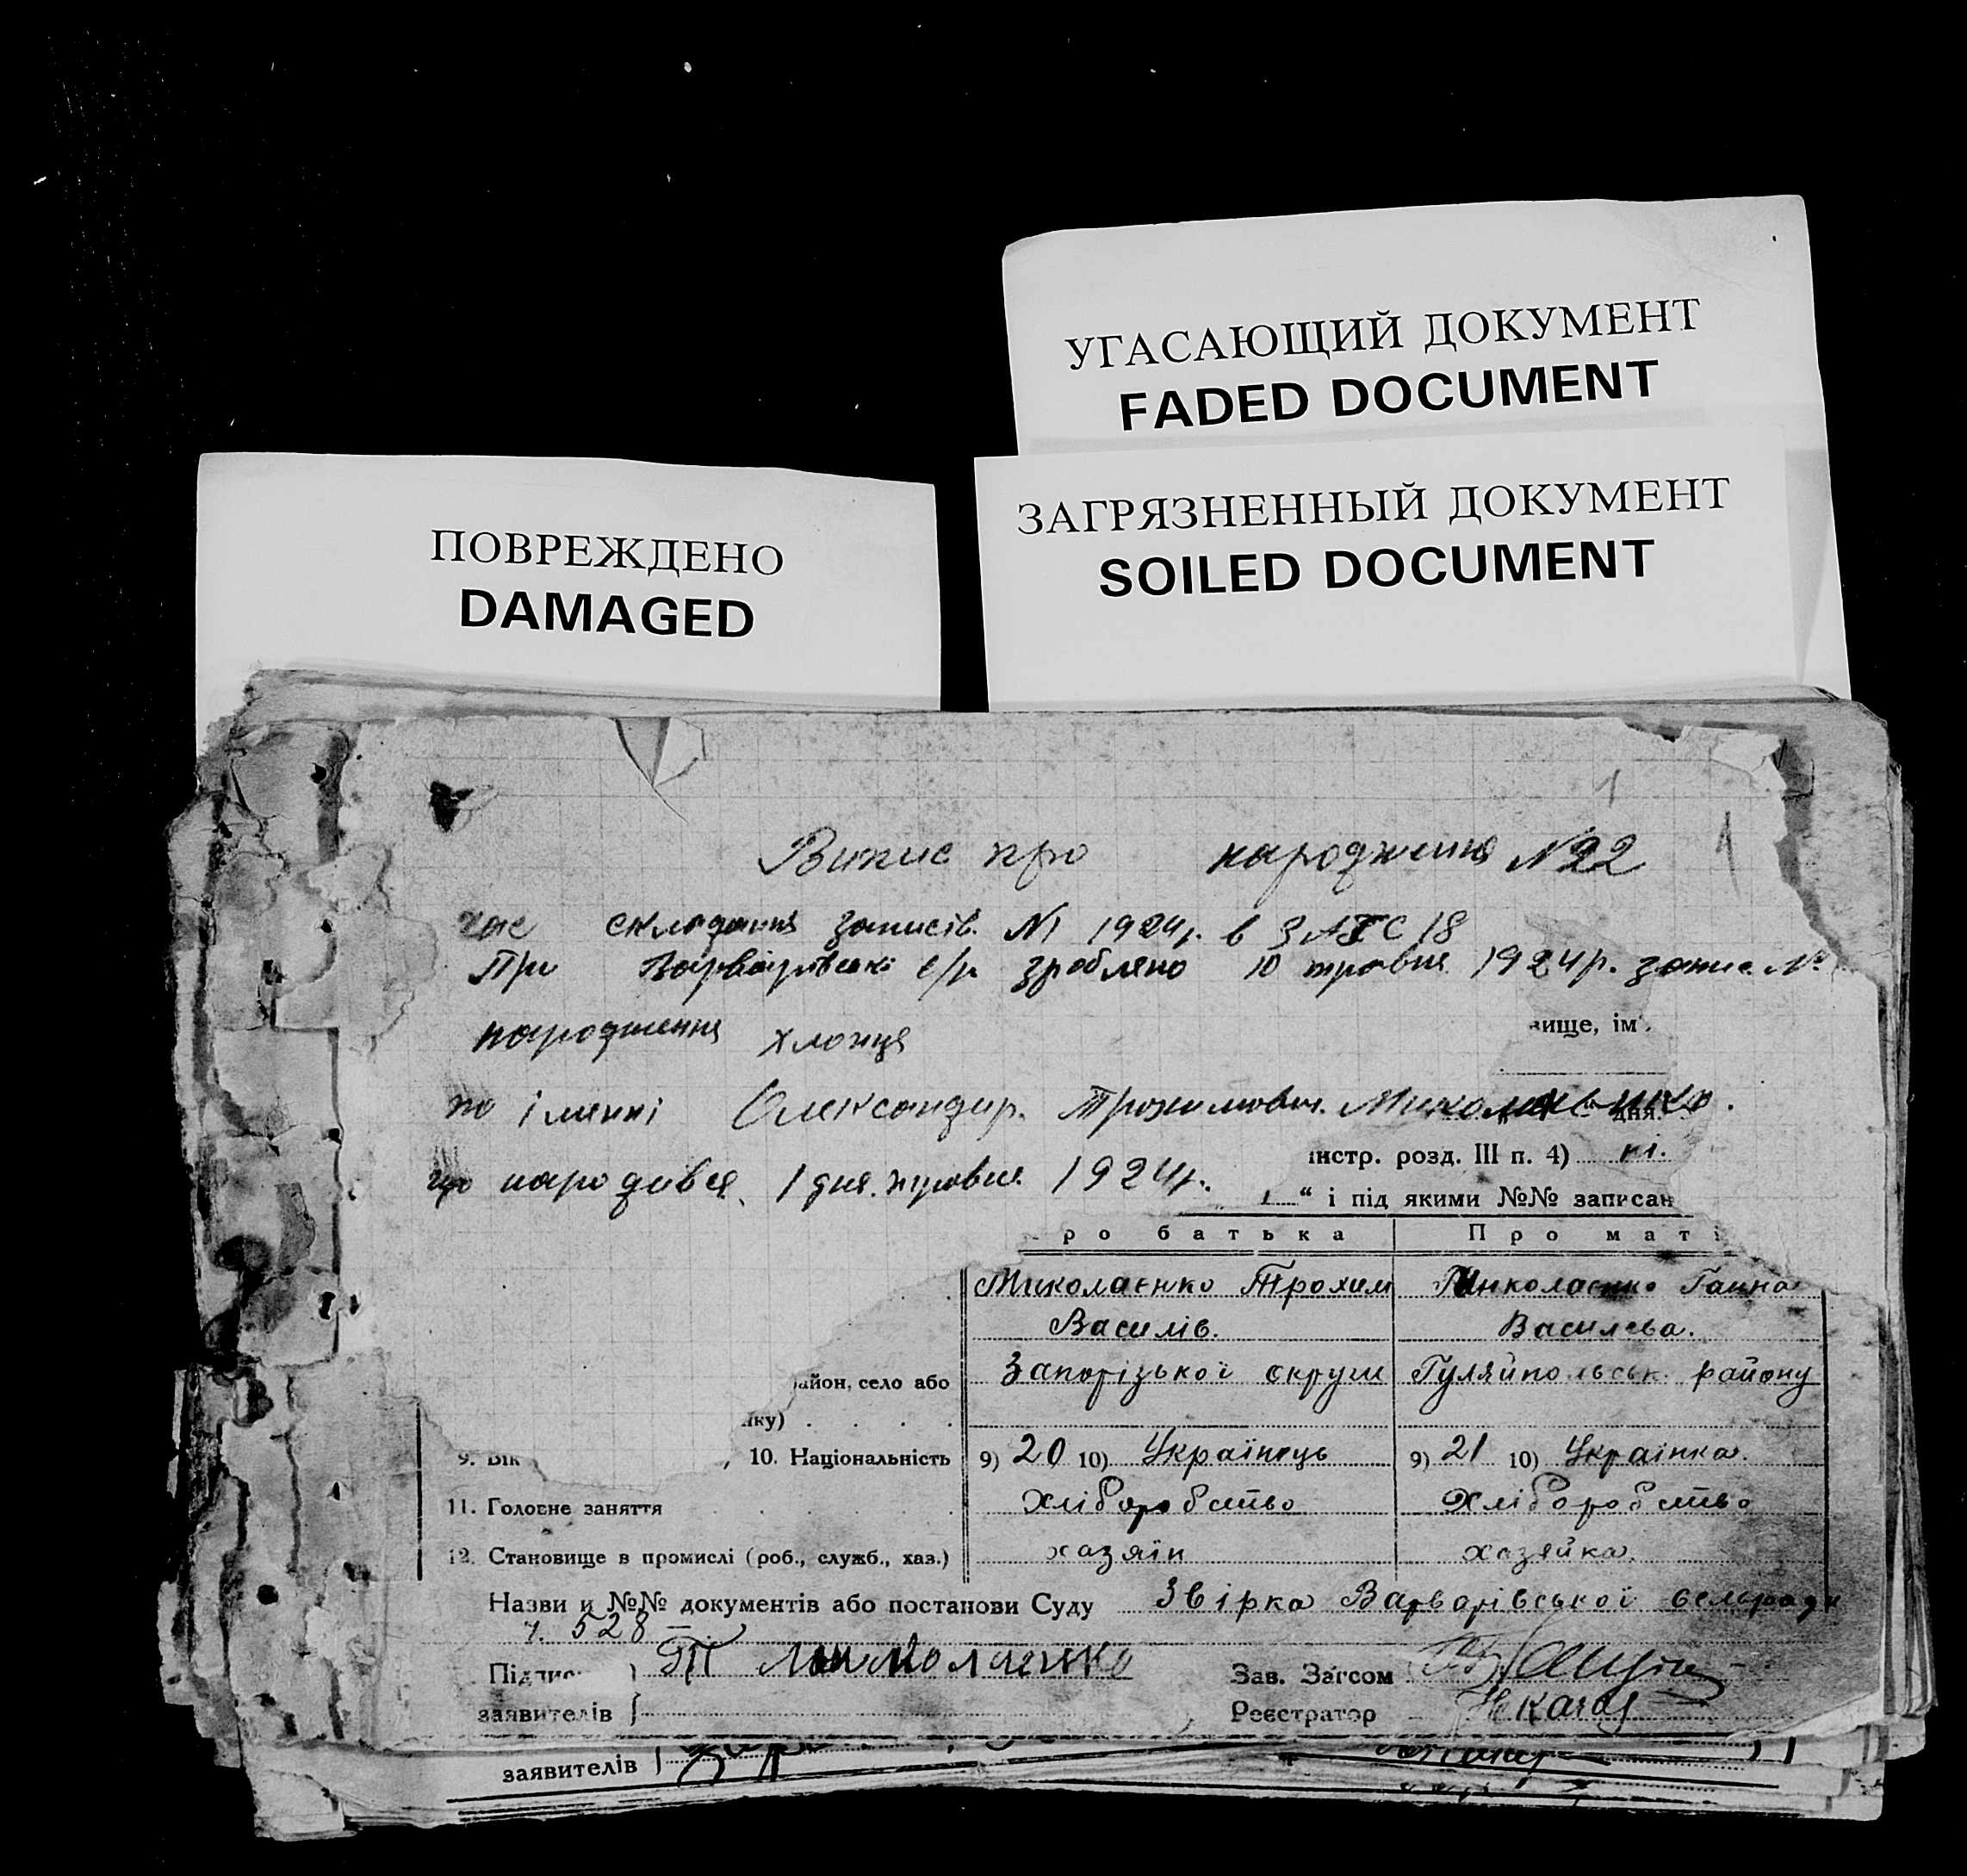 УГАСАЮЩИЙ ДОКУМЕНТ
FADED DOCUMENT
ЗАГРЯЗНЕННЫЙ ДОКУМЕНТ
SOILED DOCUMENT
ПОВРЕЖДЕНО
DAMAGED
1
1
Випис про народження №22
час складання записів. №1 1924р. в ЗАГС 18
При Варварівські с/р зроблено 10 травня 1924р. запис №
народження хлопця
вище, ім'.
по імені Олександр. Трохимович. Миколаєнко.
дня.
інстр. розд. III п. 4) ні.
що народився 1 дня травня 1924р.
“ і під якими №№ записан
ро батька Про маті
Миколаєнко Трохим Миколаєнко Ганна
Василів. Василева.
район, село або Запорізької округи Гуляйпольськ. району
нку)
9. Вік , 10. Національність 9) 20 10) Українець 9) 21 10) Українка.
11. Головне заняття Хліборобство Хліборобство
12. Становище в промислі (роб., служб., хаз.) хазяїн хазяйка.
Назви и №№ документів або постанови Суду Звірка Варварівської сельради
ч. 528 –
Підпис Т Миколаенко Зав. Загсом
заявителів Реєстратор
заявителів